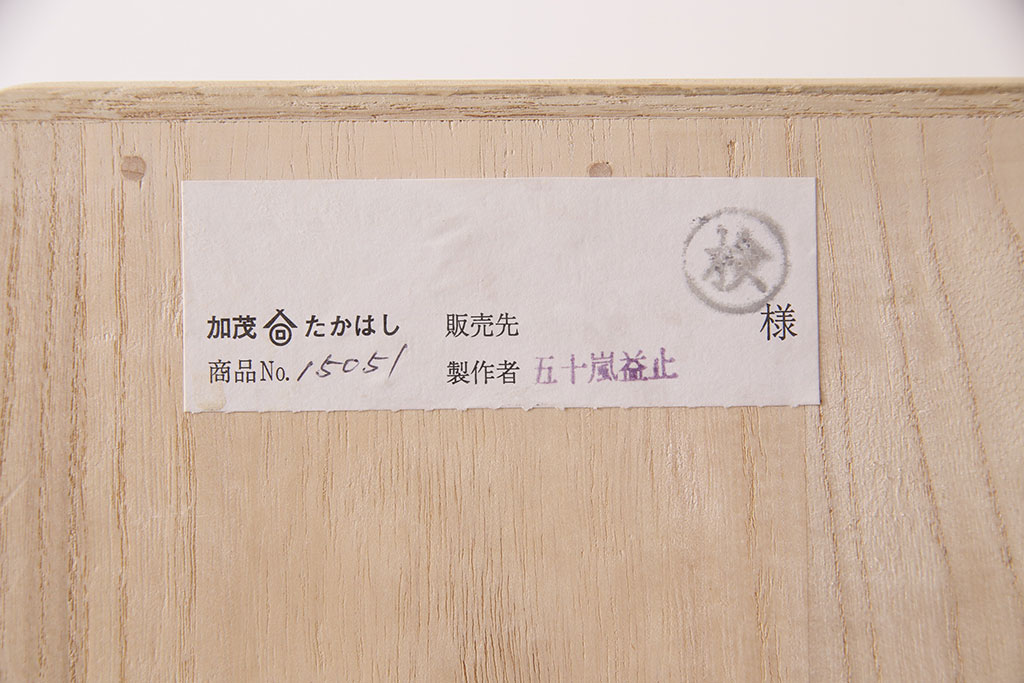 検
加茂 たかはし 販売先 様
商品No. 15051 製作者 五十嵐益止